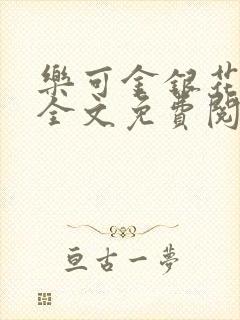 樂可金銀花
全文免費閱
亘古一夢